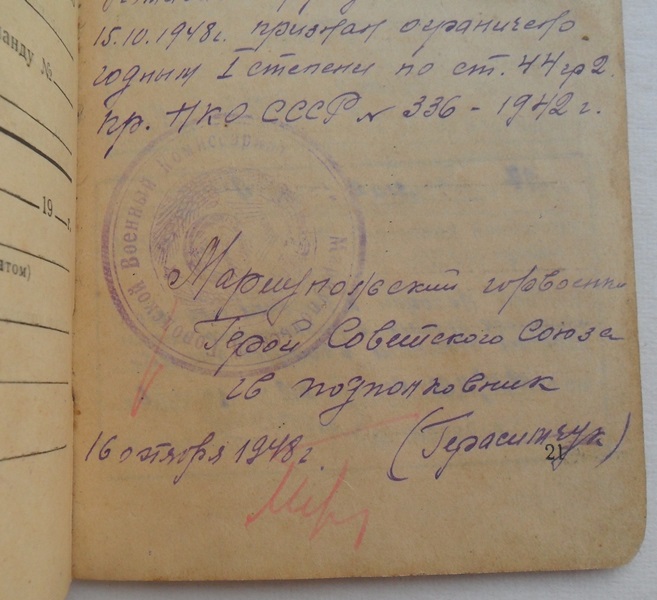 15.10.1948г. признан ограничено
годным I степени по ст. 44 гр 2.
пр. НКО СССР № 336 - 1942 г.
Городской Военный Комиссариат
Мариупольский горвоенком
Герой Советского Союза
гв подполковник
16 октября 1948г. (Герасимчук)
21
анду №
19
атом)